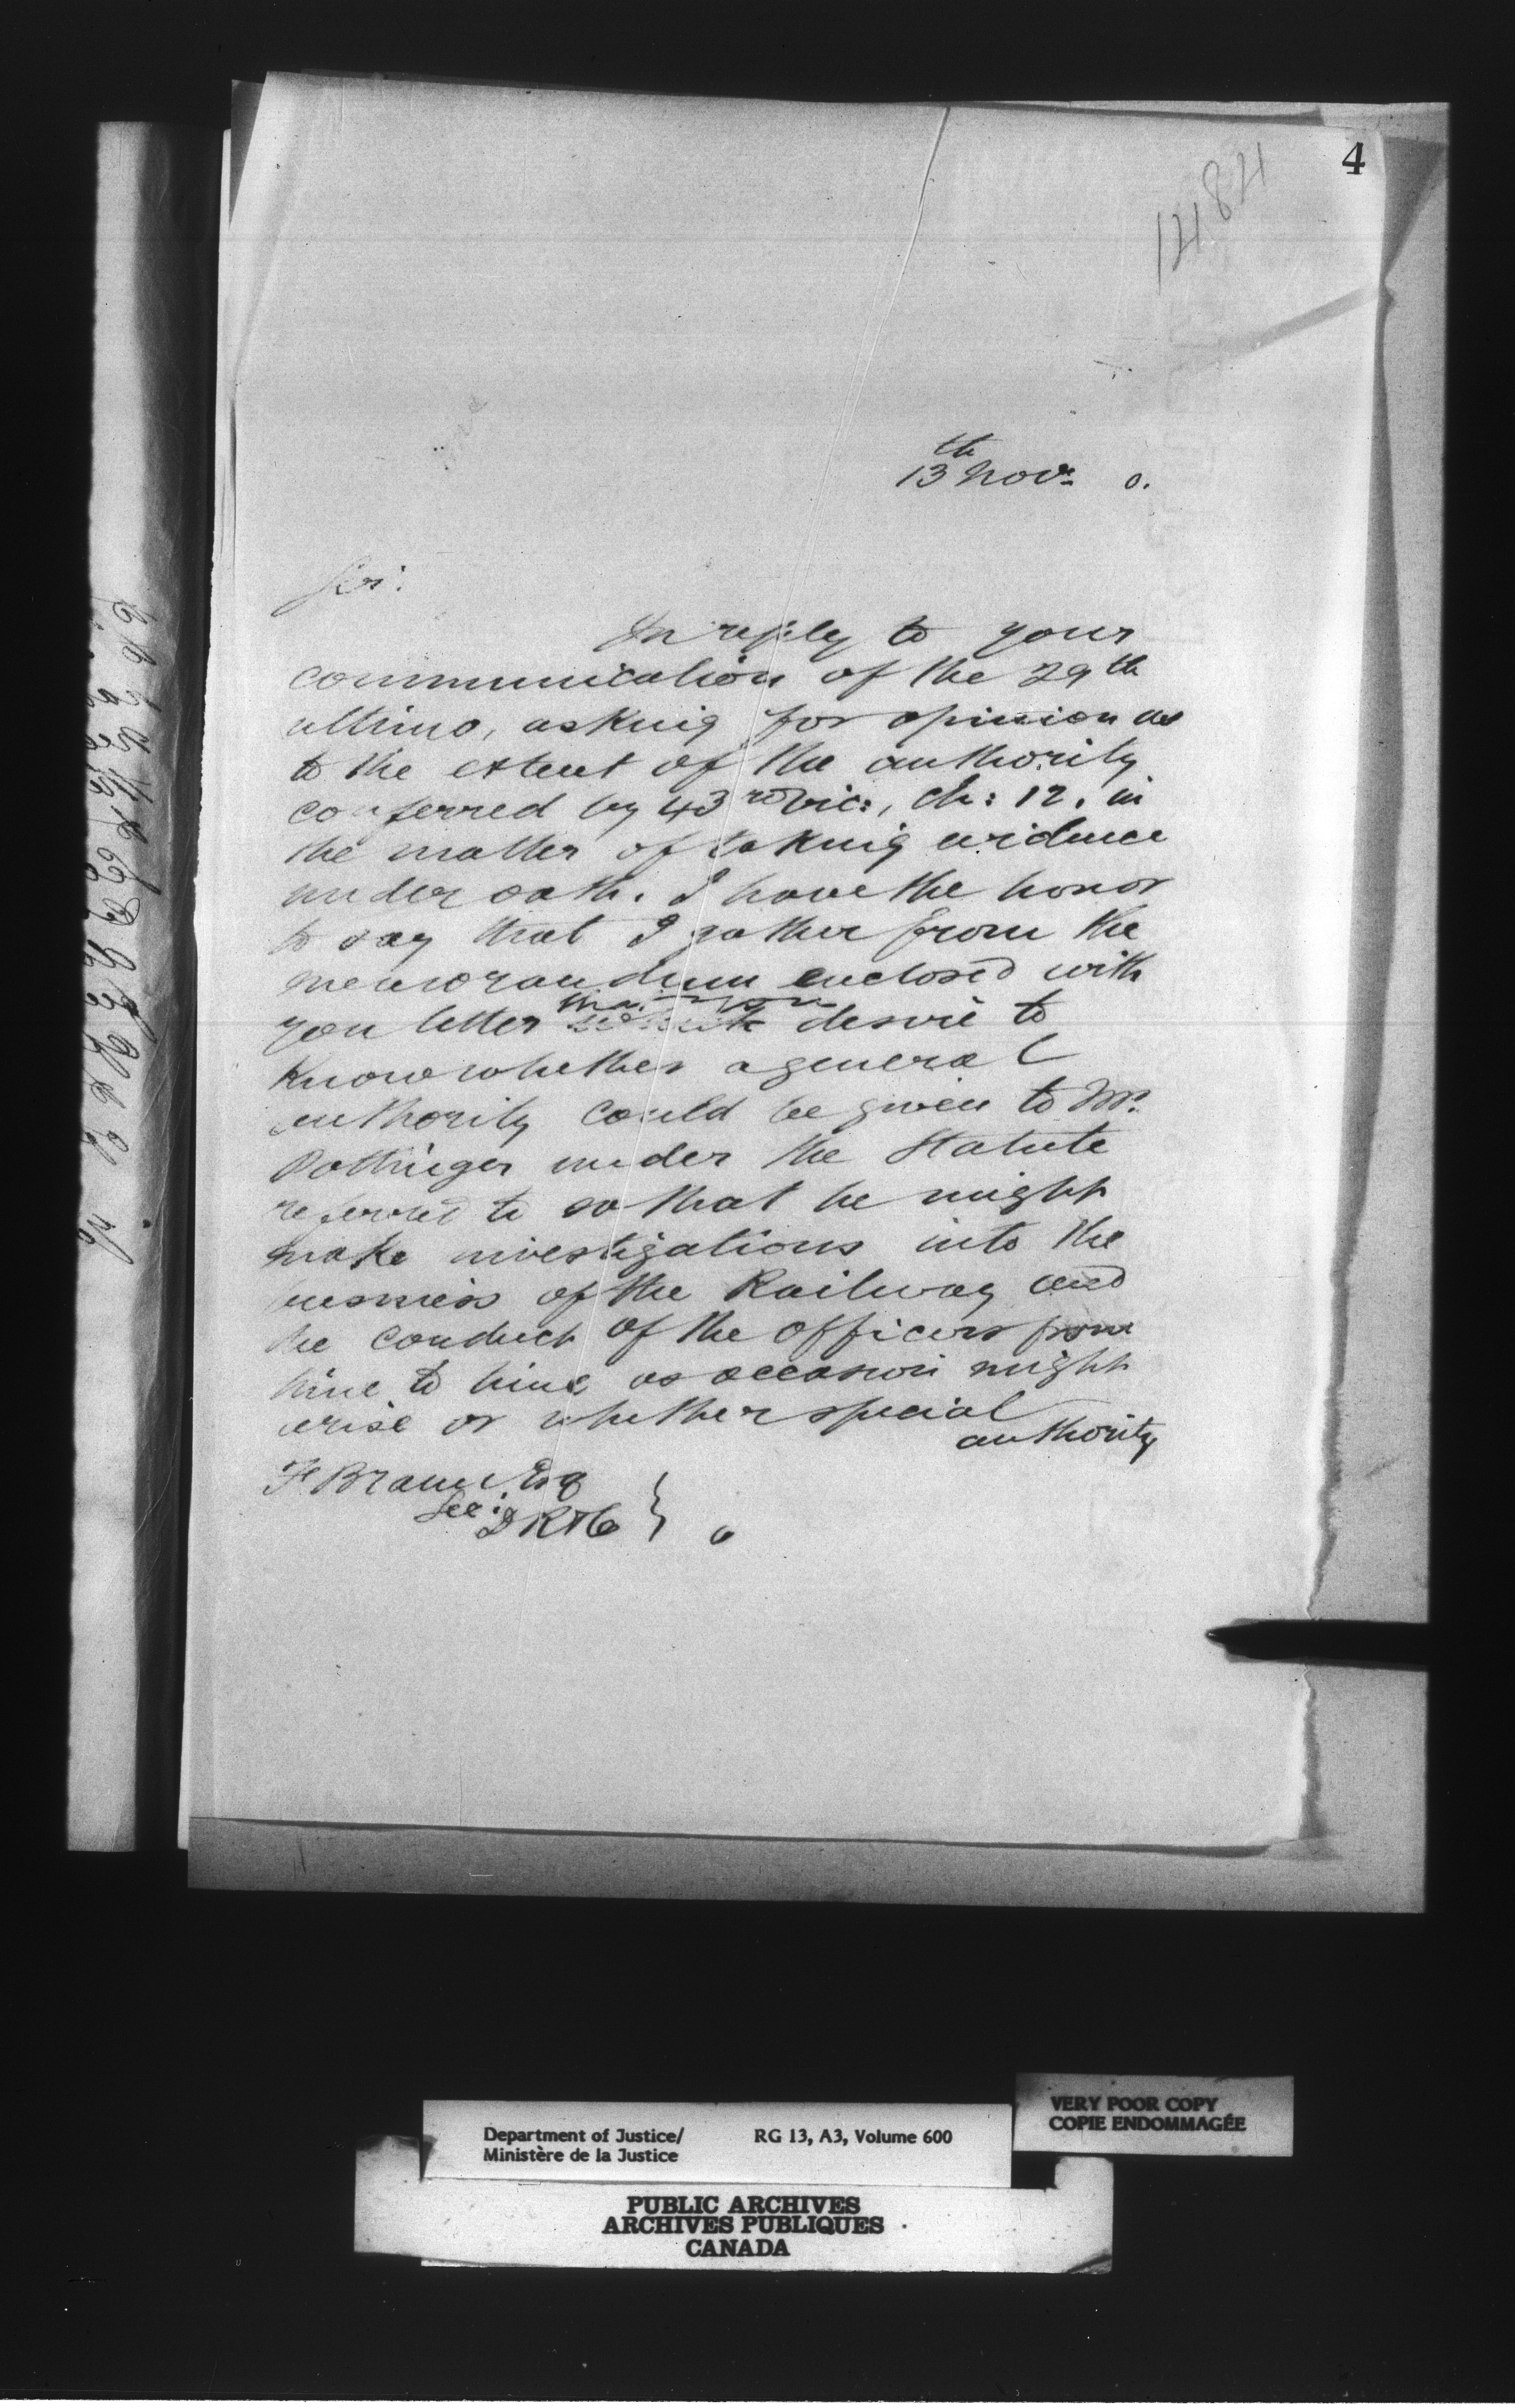 4
1484
13th Novr 0.
Sir:
In reply to your
communication of the 29th
ultimo, asking for opinion as
to the extent of the authority
conferred by 43rd Vic:, Ch: 12. in
the matter of taking evidence
under oath. I have the honor
to say that I gather from the
memorandum enclosed with
you letter that you desire to
Know whether a general
authority could be given to Mr.
Pottinger under the Statute
referred to so that he might
make investigations into the
business of the Railway and
the conduct of the Officers from
time to time as occasion might
arise or whether special
authority
F Braun Esq
Sec: D R & C } 0
Department of Justice/ RG 13, A3, Volume 600
Ministère de la Justice
VERY POOR COPY
COPIE ENDOMMAGÉE
PUBLIC ARCHIVES
ARCHIVES PUBLIQUES
CANADA